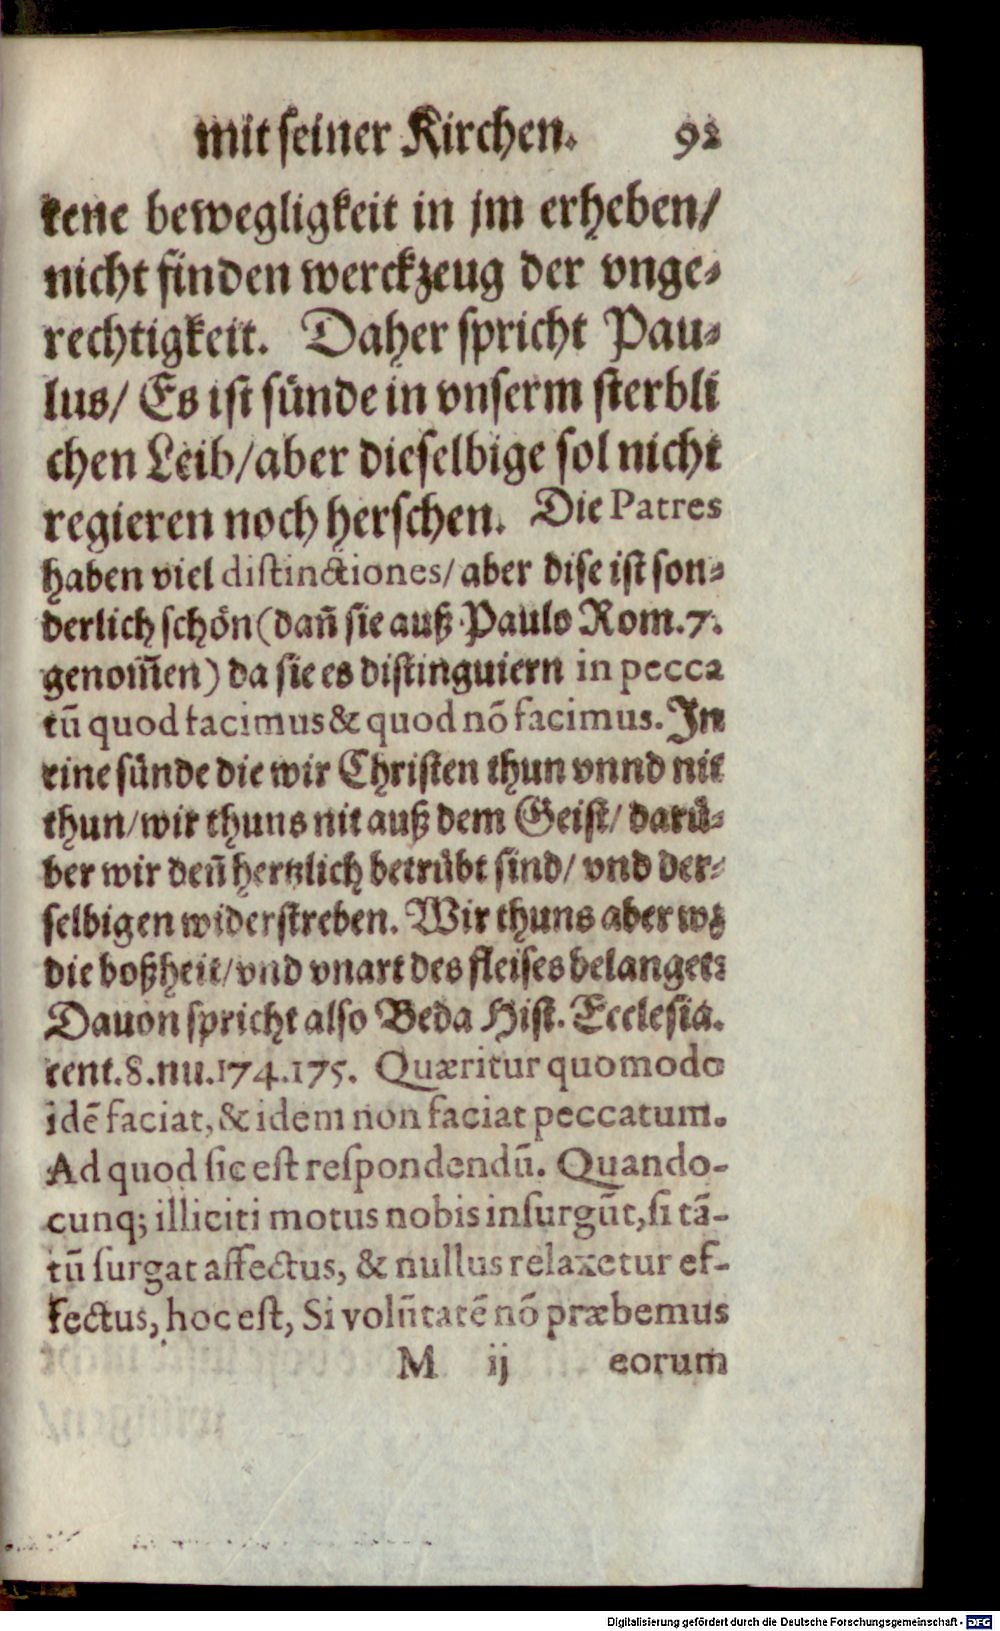 mit seiner Kirchen. 92
kene bewegligkeit in jm erheben/
nicht finden werckzeug der vnge⸗
rechtigkeit. Daher spricht Pau⸗
lus/ Es ist sünde in vnserm sterbli
chen Leib/aber dieselbige sol nicht
regieren noch herschen. Die Patres
haben viel distinctiones/ aber dise ist son⸗
derlich schön (dañ sie auß Paulo Rom.7.
genom̃en) da sie es distinguiern in pecca
tū quod facimus & quod nō facimus. In
eine sünde die wir Christen thun vnnd nit
thun/wir thuns nit auß dem Geist/ darü⸗
ber wir deñ hertzlich betrübt sind/ vnd der⸗
selbigen widerstreben. Wir thuns aber wz
die boßheit/vnd vnart des fleises belanget:
Dauon spricht also Beda Hist. Ecclesia.
cent.8.nu.174.175. Quæritur quomodo
idē faciat, & idem non faciat peccatum.
Ad quod sic est respondendū. Quando-
cunq; illiciti motus nobis insurgūt, si tā-
tū surgat affectus, & nullus relaxetur ef-
fectus, hoc est, Si volūtatē nō præbemus
M ij eorum
Digitalisierung gefördert durch die Deutsche Forschungsgemeinschaft - DFG